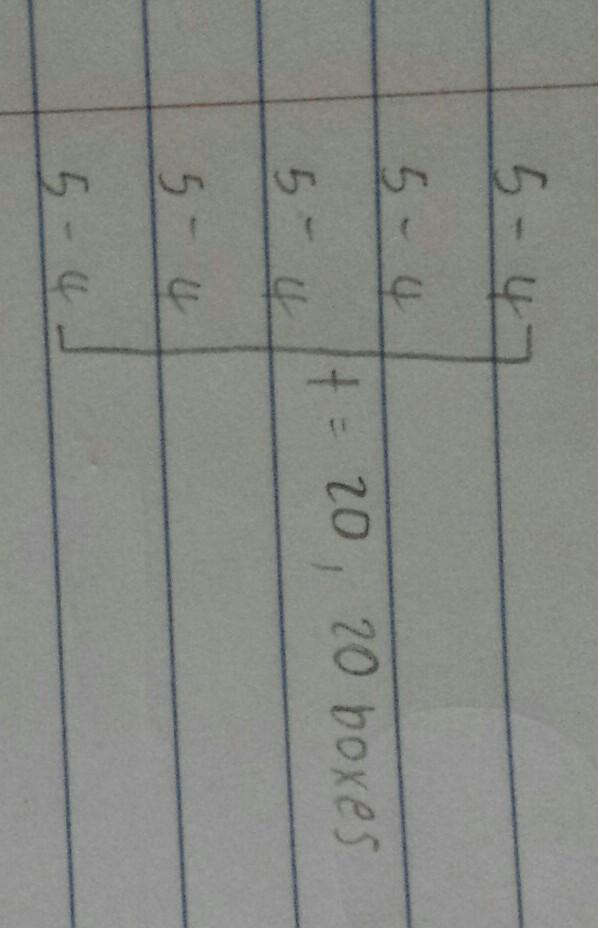 5 - 4
5 - 4
5 - 4
+ = 20, 20 boxes
5 - 4
5 - 4